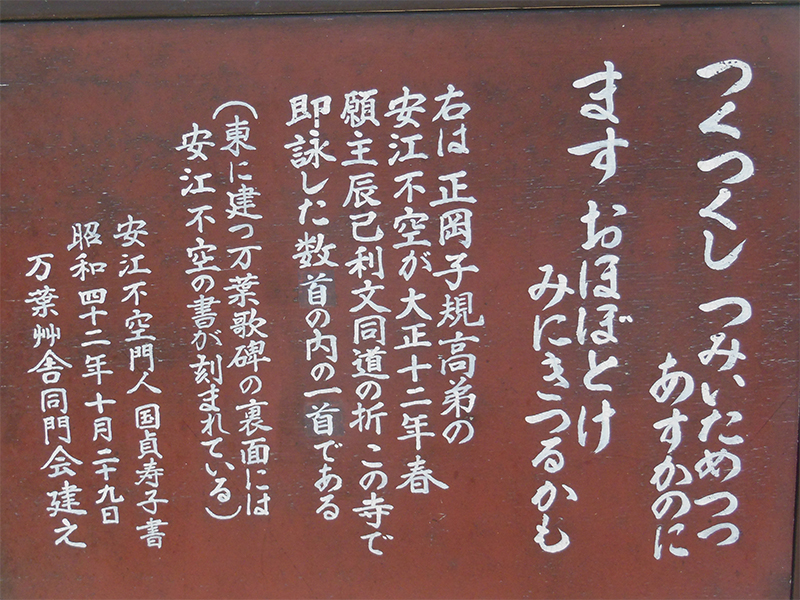 つくつくし つみいためつつ
あすかのに
ます おほぼとけ
みにきつるかも
右は正岡子規高弟の
安江不空が大正十二年春
願主辰己利文同道の折 この寺で
即詠した数首の内の一首である
（東に建つ万葉歌碑の裏面には
安江不空の書が刻まれている）
安江不空門人 国貞寿子書
昭和四十二年十月二十九日
万葉艸舎同門会建之